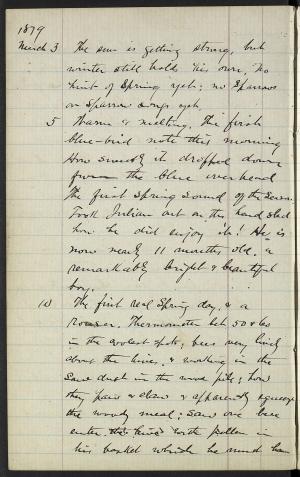 1879
March 3 The sun is getting strong, but
winter still holds his own. No
hint of Spring yet; no Sparrows
or Sparrow songs yet.
5 Warm & melting. The first
blue-bird note this morning
How sweetly it dropped down
from the blue overhead
The first Spring sound of the Season.
Took Julian out on the hand sled
how he did enjoy it! He is
now nearly 11 months old, a
remarkably bright & beautiful
boy.
10 The first real Spring day, & a
rouser. Thermometer bet. 50 & 60
in the coolest spots; bees very lively
about the hive, & working in the
Saw dust in the wood pile; how
they paw & claw & apparently squeeze
the woody meal; Saw one bee
enter the hive with pollen in
his basket which he must have